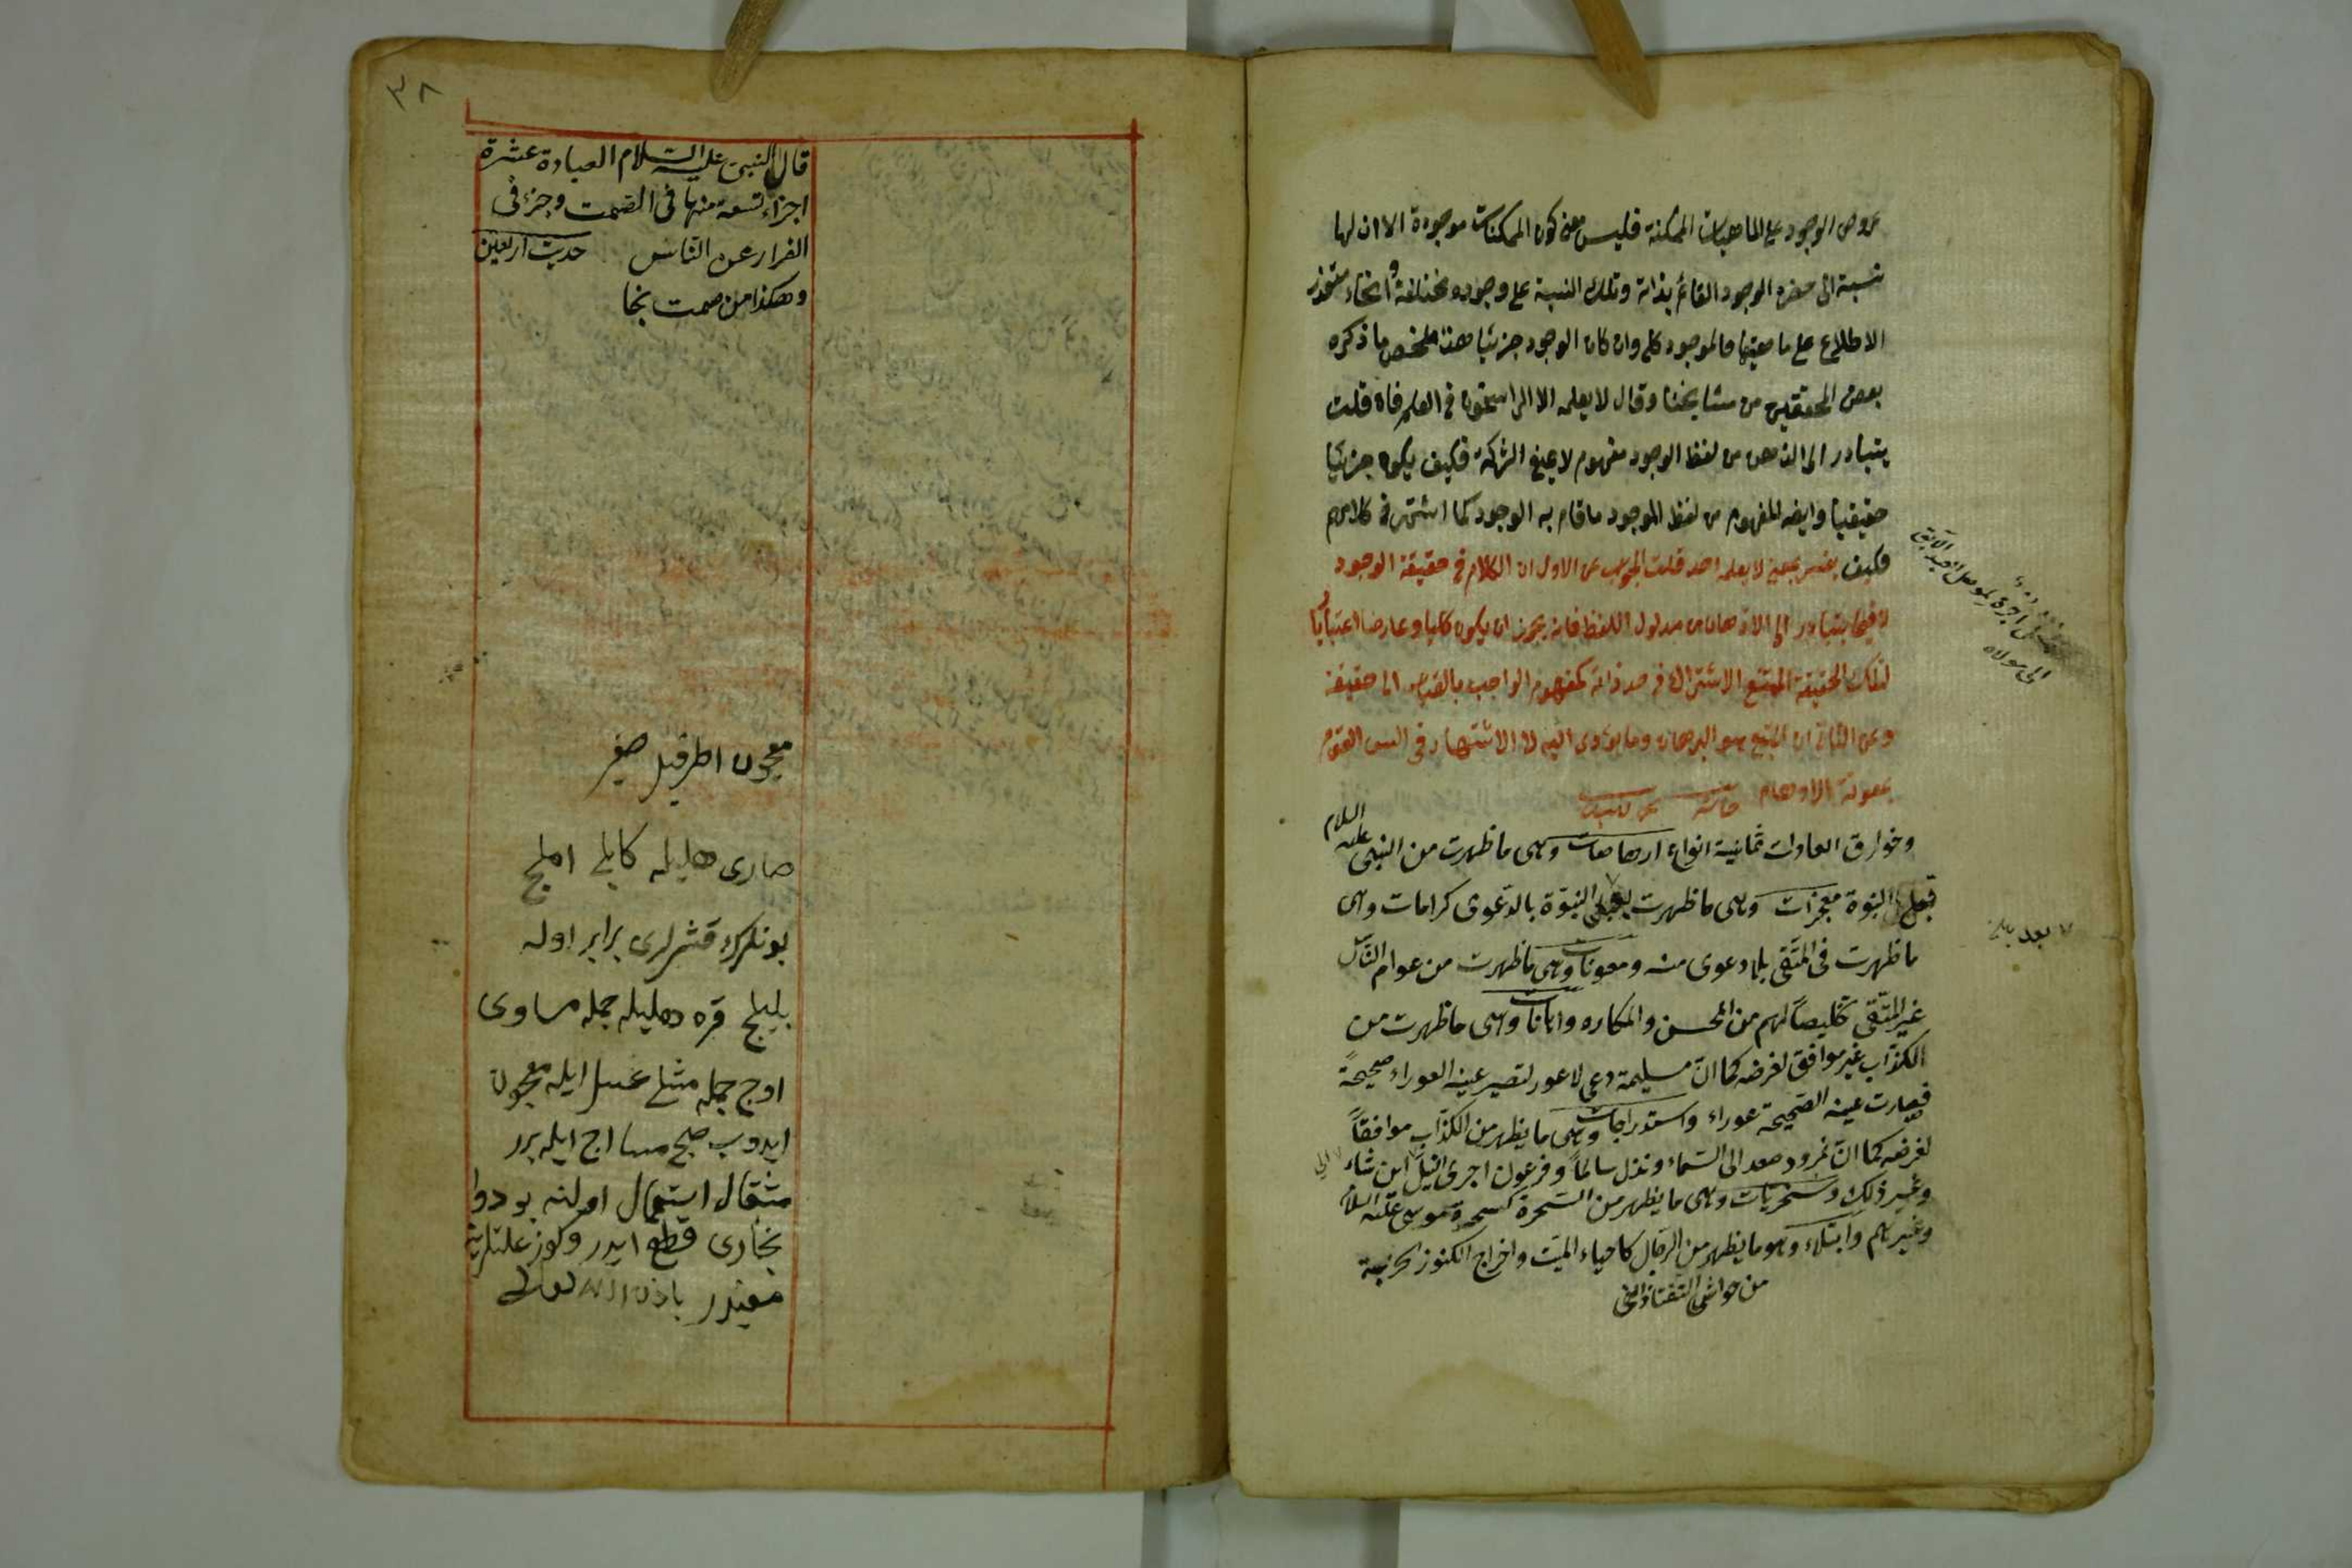 عروض الوجود على الماهيات الممكنة فليس معنى كون الممكنات موجودة الا ان لها
نسبة الى حضرة الوجود القائم بذاته وتلك النسبة على وجوه مختلفة وانحاء متعذر
الاطلاع على ماهيتها فالموجود كلى وان كان الوجود جزئيا هذا ملخص ما ذكره
بعض المحققين من مشايخنا وقال لا يعلمه الا الراسخون فى العلم فان قلت
يتبادر الى الذهن من لفظ الوجود مفهوم لا يمنع الشركة فكيف يكون جزئيا
حقيقيا وايضا المفهوم من لفظ الموجود ما قام به الوجود كما اشتهر فى كلامهم
فكيف يفسر بمعنى لا يعلمه احد قلت الجواب عن الاول ان الكلام فى حقيقة الوجود
لا فيما يتبادر الى الاذهان من مدلول اللفظ فانه يجوز ان يكون كليا وعارضا اعتباريا
لتلك الحقيقة الممتنع الاشتراك فى حد ذاته كمفهوم الواجب بالقياس الى حقيقة
وعن الثانى ان المتبع هو البرهان وما يؤدى اليه لا الاشتهار فى السن القوم
بمعونة الاوهام
وخوارق العادات ثمانية انواع ارهاصات وهى ما ظهرت من النبى عليه السلام
قبل النبوة معجزات وهى ما ظهرت النبوة بالدعوى كرامات وهى
ما ظهرت فى المتقى بلا دعوى منه ومعونات وهى ما ظهرت من عوام الناس
غير المتقى تخليصا لهم من المحن والمكاره واهانات وهى ما ظهرت من
الكذاب غير موافق لغرضه كما ان مسيلمة دعى لاعور لتصير عينه العوراء صحيحة
فصارت عينه الصحيحة عوراء واستدراجات وهى ما يظهر من الكذاب موافقا
لغرضه كما ان نمرود صعد الى السماء ونزل سالما وفرعون اجرى النيل اين شاء
وغير ذلك وسخريات وهى ما يظهر من السحرة كسحرة موسى عليه السلام
وغيرهم وابتلاء وهو ما يظهر من الدجال كاحياء الميت واخراج الكنوز الخربة
من حواشى التفتازانى
الى مولاه
بعد
٣٨
قال النبى عليه السلام العبادة عشرة
اجزاء تسعة منها فى الصمت وجزء فى
الفرار عن الناس حديث اربعين
وهكذا من صمت نجا
معجون اطريفل صغير
صارى هليله كابلى املج
بونلرك قشرلرى برابر اوله
بليلج قره هليله جمله مساوى
اوج جمله مثلى عسل ايله معجون
ايدوب صبح مسا اج ايله برر
مثقال استعمال اولنه بو دوا
بخارى قطع ايدر وكوز علتلرينه
مفيددر باذن الله تعالى